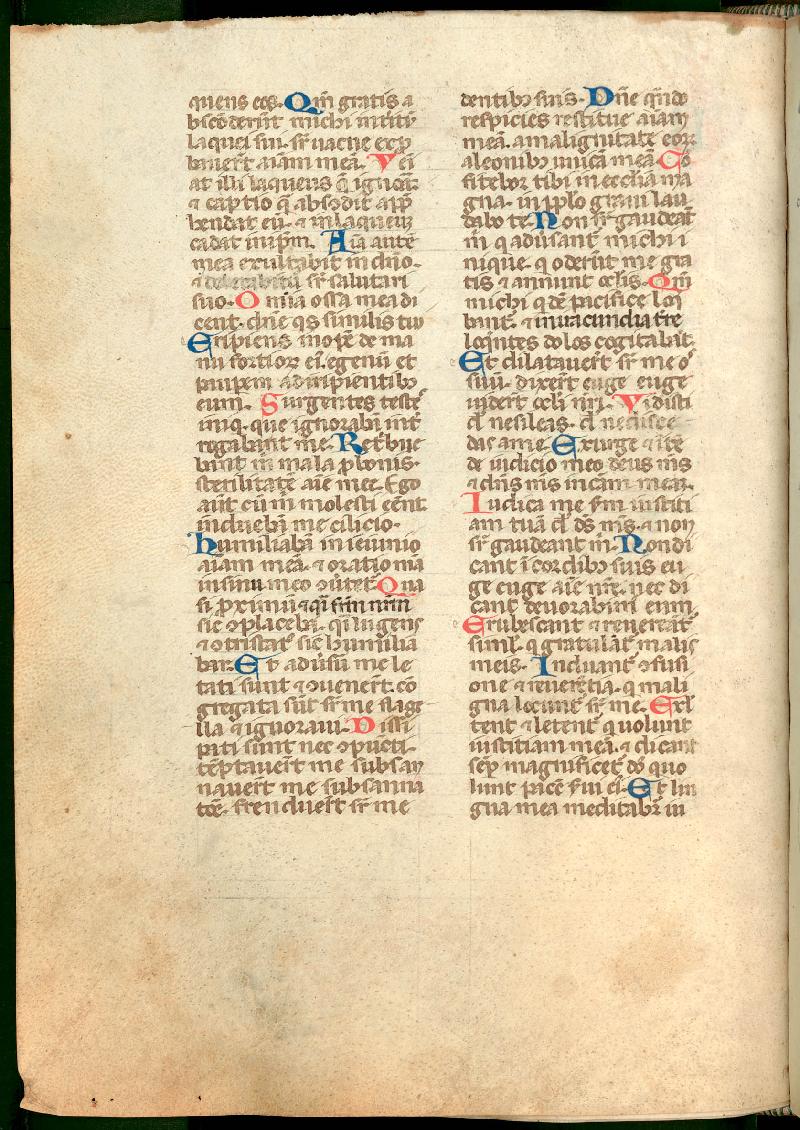 quens eos. Qm̄ gratis a
bscōderūt michi īnt'itū
laquei sui. sr̄ uacue exp̄
bauer̄t aīam meā. Vēi
at illi laqueus q̄ ignoat
⁊ captio q̄ abscōdit app̄
hendat eū. ⁊ in laqueū
cadat in ip̄m. Aīa autē
mea exultabit in dn̄o.
⁊ delectabitū sr̄ salutari
suo. Omīa ossa mea di
cent. dn̄e q̄s similis tui
Eripiens inopē de ma
nu fortior̄ eī. egenū et
paupem a diripientibꝫ
eum. Surgentes testē
iniq. que ignorabā int̄
rogabant me. Ret̄bue
bant m̄ mala ꝓ bonis.
sterilitatē aīe mee. Ego
aūt cū m̄ molesti eēnt
induebā me cilicio.
Humiliabā in ieiunio
aīam meā. ⁊ oratio ma
in sinu meo ꝯuter̄. Qua
si ꝓximū ⁊ q̄i frēm nr̄m
sic ꝯplacebā. q̄i lugens
⁊ ꝯtristat' sic humilia
bar. Et adūsū me le
tati sunt ⁊ ꝯuener̄t. cō
gregata sūt sr̄ me flage
lla ⁊ ignoraui. Dissi
pati sunt nec ꝯpūcti.
tēptauer̄t me subsan
nauer̄t me subsanna
tōe. frenduer̄t sr̄ me
dentibꝫ suis. Dn̄e qn̄do
respicies restitue aīam
meā. a malignitate eor̄.
a leonibꝫ unicā meā. Cō
fitebor tibi in ecclīa ma
gna. in pp̄lo graui lau
dabo te. Non sr̄ gaudeāt
m̄ q adūsant michi i
nique. q oderūt me gra
tis ⁊ annunt oc̄lis. Qm̄
michi q̄dē pacifice loq̄
bant̄. ⁊ in iracundia t̄re
loq̄ntes dolos cogitabāt.
Et dilatauer̄t sr̄ me o
suū. dixer̄t euge euge
uider̄t oc̄li nr̄i. Vidisti
dn̄e ne sileas. dn̄e ne disce
das a me. Exurge ⁊ ītēde
de iudicio meo deus ms̄
⁊ dn̄s ms̄ in cām meā.
Iudica me sm̄ iustiti
am tuā dn̄e ds̄ ms̄. ⁊ non
sr̄ gaudeant m̄. Non di
cant ī cordibꝫ suis eu
ge euge aīe nr̄e. nec di
cant deuorabim' eum.
Erubescant ⁊ reuereāt̄
simł. q gratulāt̄ malis
meis. Induant̄ ꝯfusi
one ⁊ reuerētia. q mali
gna locunt̄ sr̄ me. Exl
tent ⁊ letent̄ q uolunt
iustitiam meā. ⁊ dicant
semp̄ magnificet̄ ds̄ quo
lunt pacē sui ei. Et lin
gua mea meditabit̄ iu